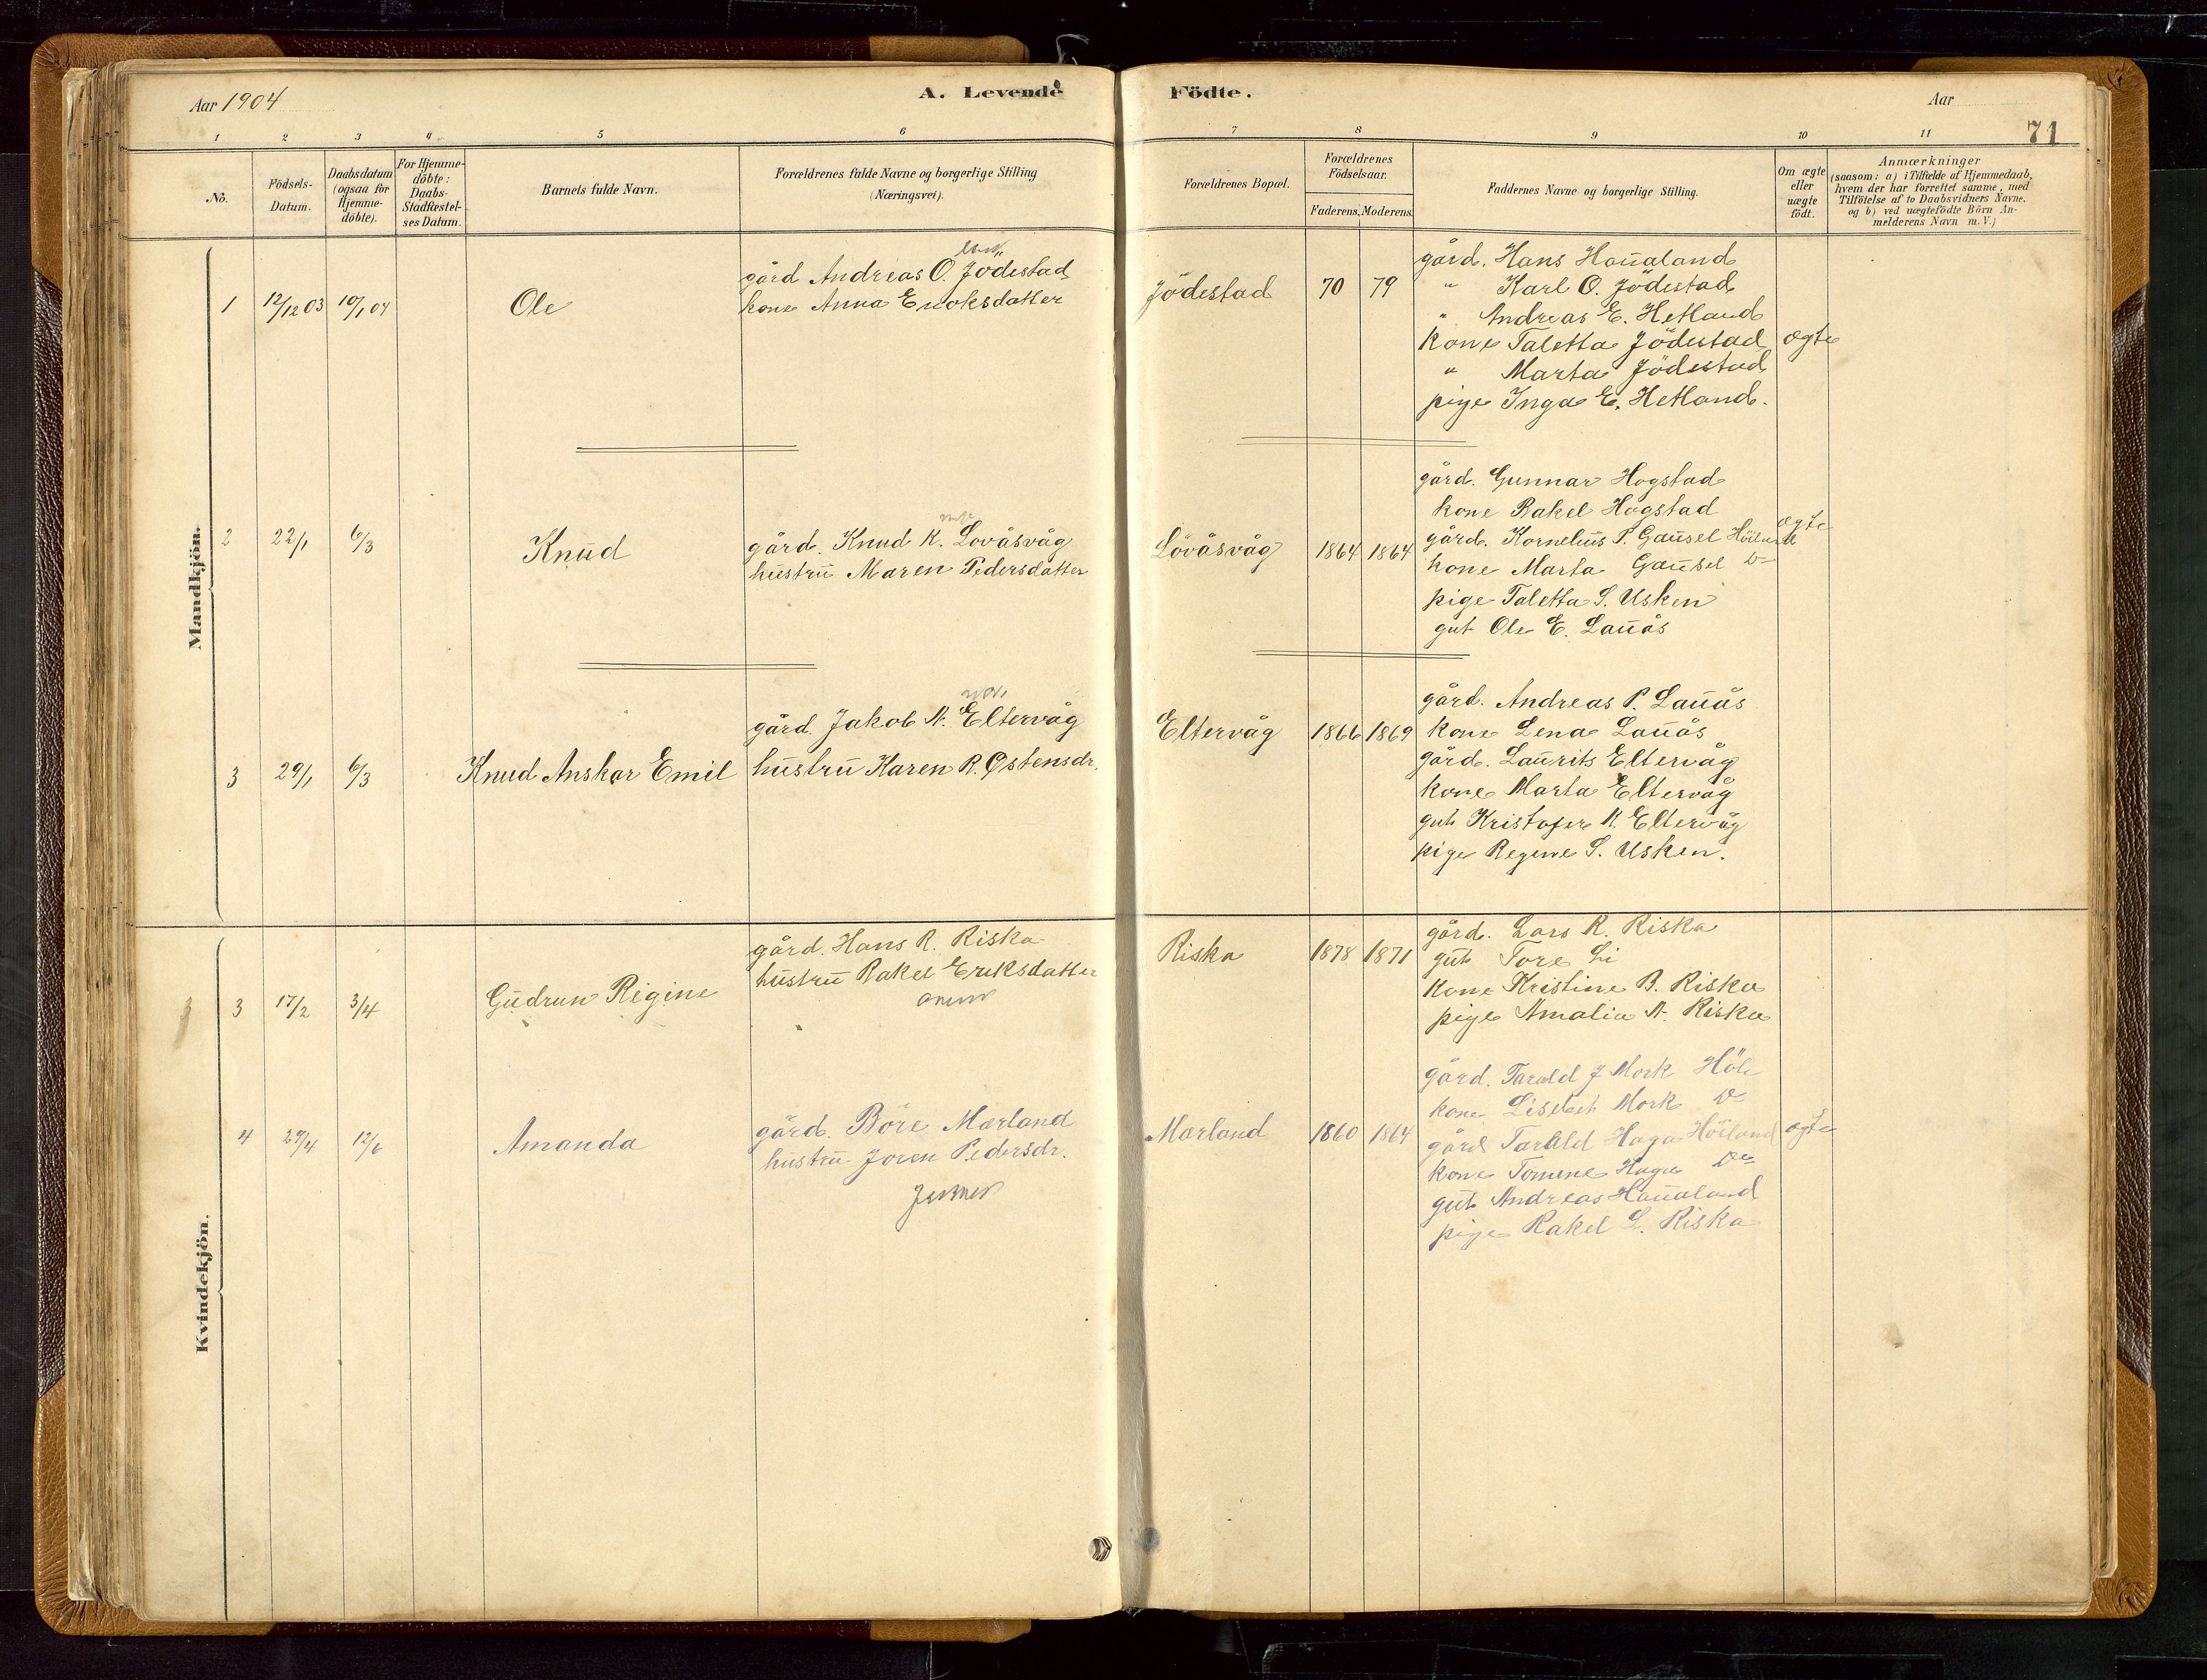 Aar 1904
A. Levende Födte.
Aar
71
1 2 3 4 5 6 7 8 9 10 11
No.
Födsels-Datum.
Daabsdatum (ogsaa for Hjemme-döbte).
For Hjemme-döbte: Daabs-Stadfæstel-ses Datum.
Barnets fulde Navn.
Forældrenes fulde Navne og borgerlige Stilling (Næringsvei).
Forældrenes Bopæl.
Forældrenes Födselsaar.
Faderens. Moderens.
Faddernes Navne og borgerlige Stilling.
Om ægte eller uægte födt.
Anmærkninger (saasom: a) i Tilfælde af Hjemmedaab, hvem der har forrettet samme, med Tilföielse af to Daabsvidners Navne, og b) ved uægtefödte Börn An-melderens Navn m. V.)
Mandkjön.
1 12/12 03 10/1 04 Ole
gård Andreas O. Jödestad
kone Anna Enoksdatter
Jödestad 70 79
gård. Hans Haualand
" Karl O. Jödestad
" Andreas E. Hetland
kone Taletta Jödestad ægte
" Marta Jödestad
pige Inga E. Hetland.
2 22/1 6/3 Knud
gård. Knud K. Lovåsvåg
hustru Maren Pedersdatter
Lövåsvåg 1864 1864
gård. Gunnar Hogstad
kone Rakel Hogstad
gård. Kornelius P. Gausel Höiland ægte
kone Marta Gausel D-
pige Taletta S. Usken
gut Ole E. Lauås
3 29/1 6/3 Knud Anskar Emil
gård. Jakob N. Eltervåg
hustru Karen R. Østensdr.
Eltervåg 1866 1869
gård. Andreas P. Lauås
kone Lena Lauås
gård. Laurits Eltervåg
kone Marta Eltervåg
gut Kristofer K. Eltervåg
pige Regine S. Usken.
Kvindekjön.
3 3 17/2 3/4 Gudrun Rigine
gård. Hans R. Riska
hustru Rakel Eriksdatter
Riska 1878 1871
gård. Lars R. Riska
gut Tore Li
kone Kristine B. Riska
pige Amalia N. Riska
4 29/4 12/6 Amanda
gård. Böre Mæland
hustru Joren Pedersdr.
Mæland 1860 1864
gård. Tarald J Mork Höle
kone Lisebet Mork D-
gård Tarald Haga Höiland ægte
kone Tomine Haga Do
gut Andreas Haualand
pige Rakel L. Riska